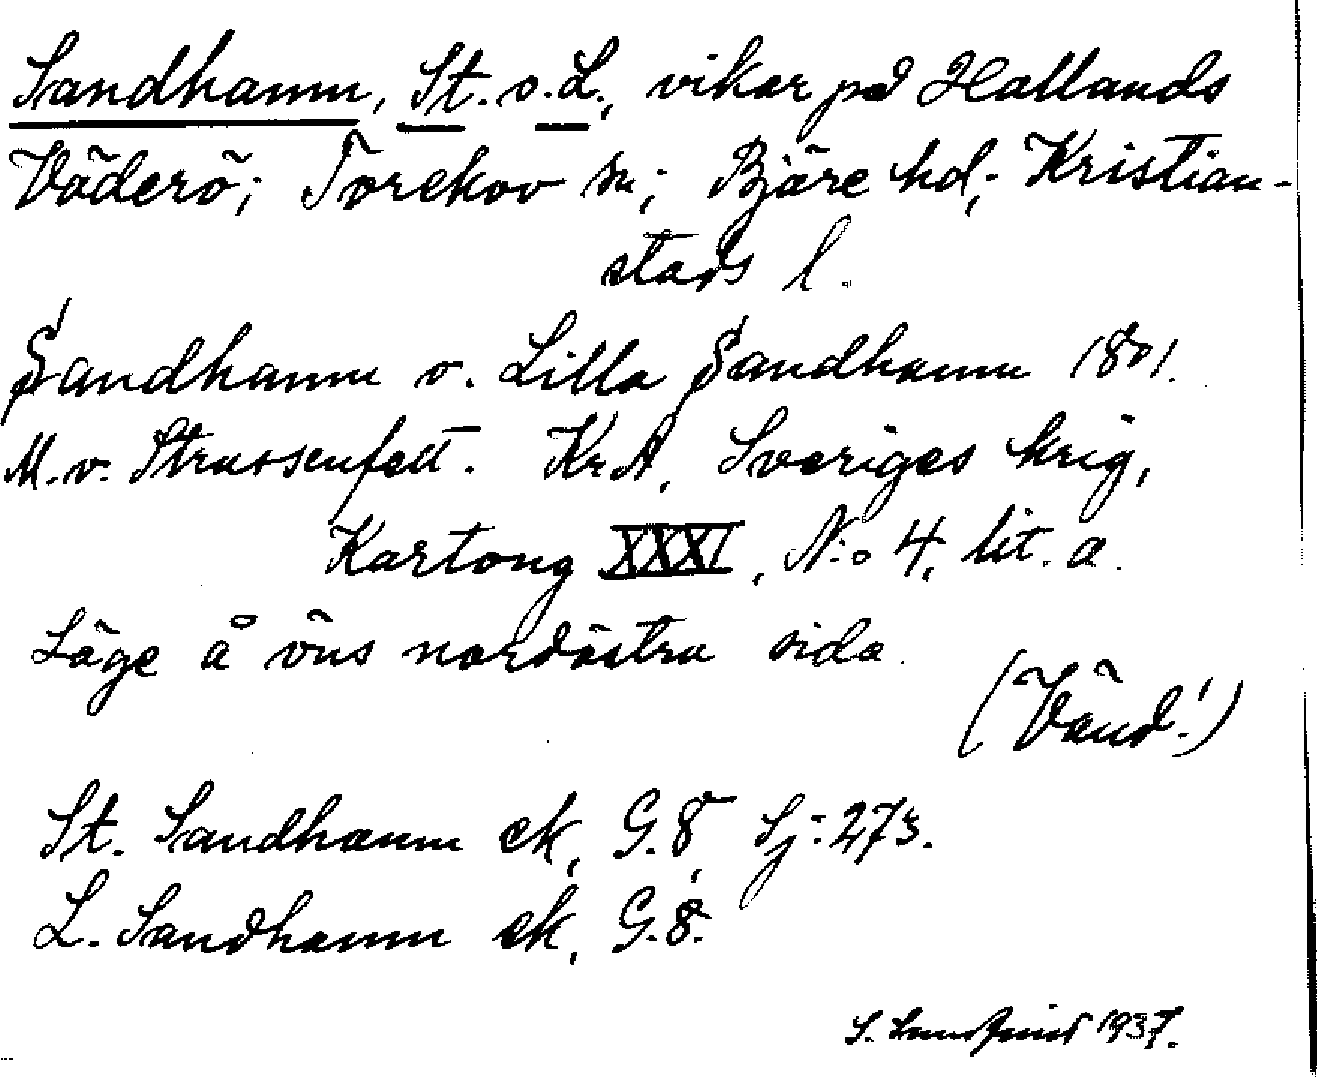 Sandhamn, St. o. L., vikar på Hallands
Väderö; Torekov sn; Bjäre hd; Kristian-
stads l.
Sandhamn o. Lilla Sandhamn 1801.
M. v. Strussenfelt. KrA, Sveriges krig,
Kartong XXXI, N:o 4, lit. a.
Läge å öns nordöstra sida.
(Vänd!)
St. Sandhamn ek, G. 8, Sj: 273.
L. Sandhamn ek, G. 8.
1937.